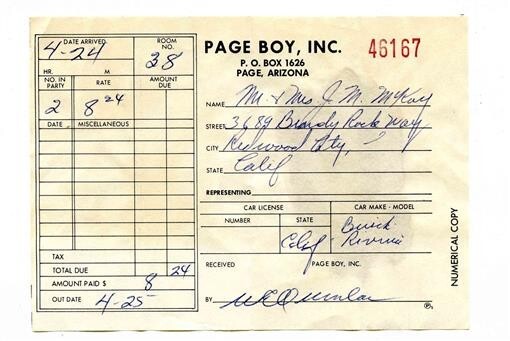 DATE ARRIVED
4-24
ROOM NO.
38
HR. M
NO. IN PARTY
RATE
AMOUNT DUE
2
8 24
DATE
MISCELLANEOUS
TAX
TOTAL DUE
8 24
AMOUNT PAID $
OUT DATE 4-25
PAGE BOY, INC.
46167
P. O. BOX 1626
PAGE, ARIZONA
NAME Mr. & Mrs. J. M. McKay
STREET 3689 Brandy Rock Way
CITY Redwood City,
STATE Calif
REPRESENTING
CAR LICENSE
CAR MAKE - MODEL
NUMBER
STATE
Calif
Buick
Riviera
RECEIVED
PAGE BOY, INC.
BY
NUMERICAL COPY